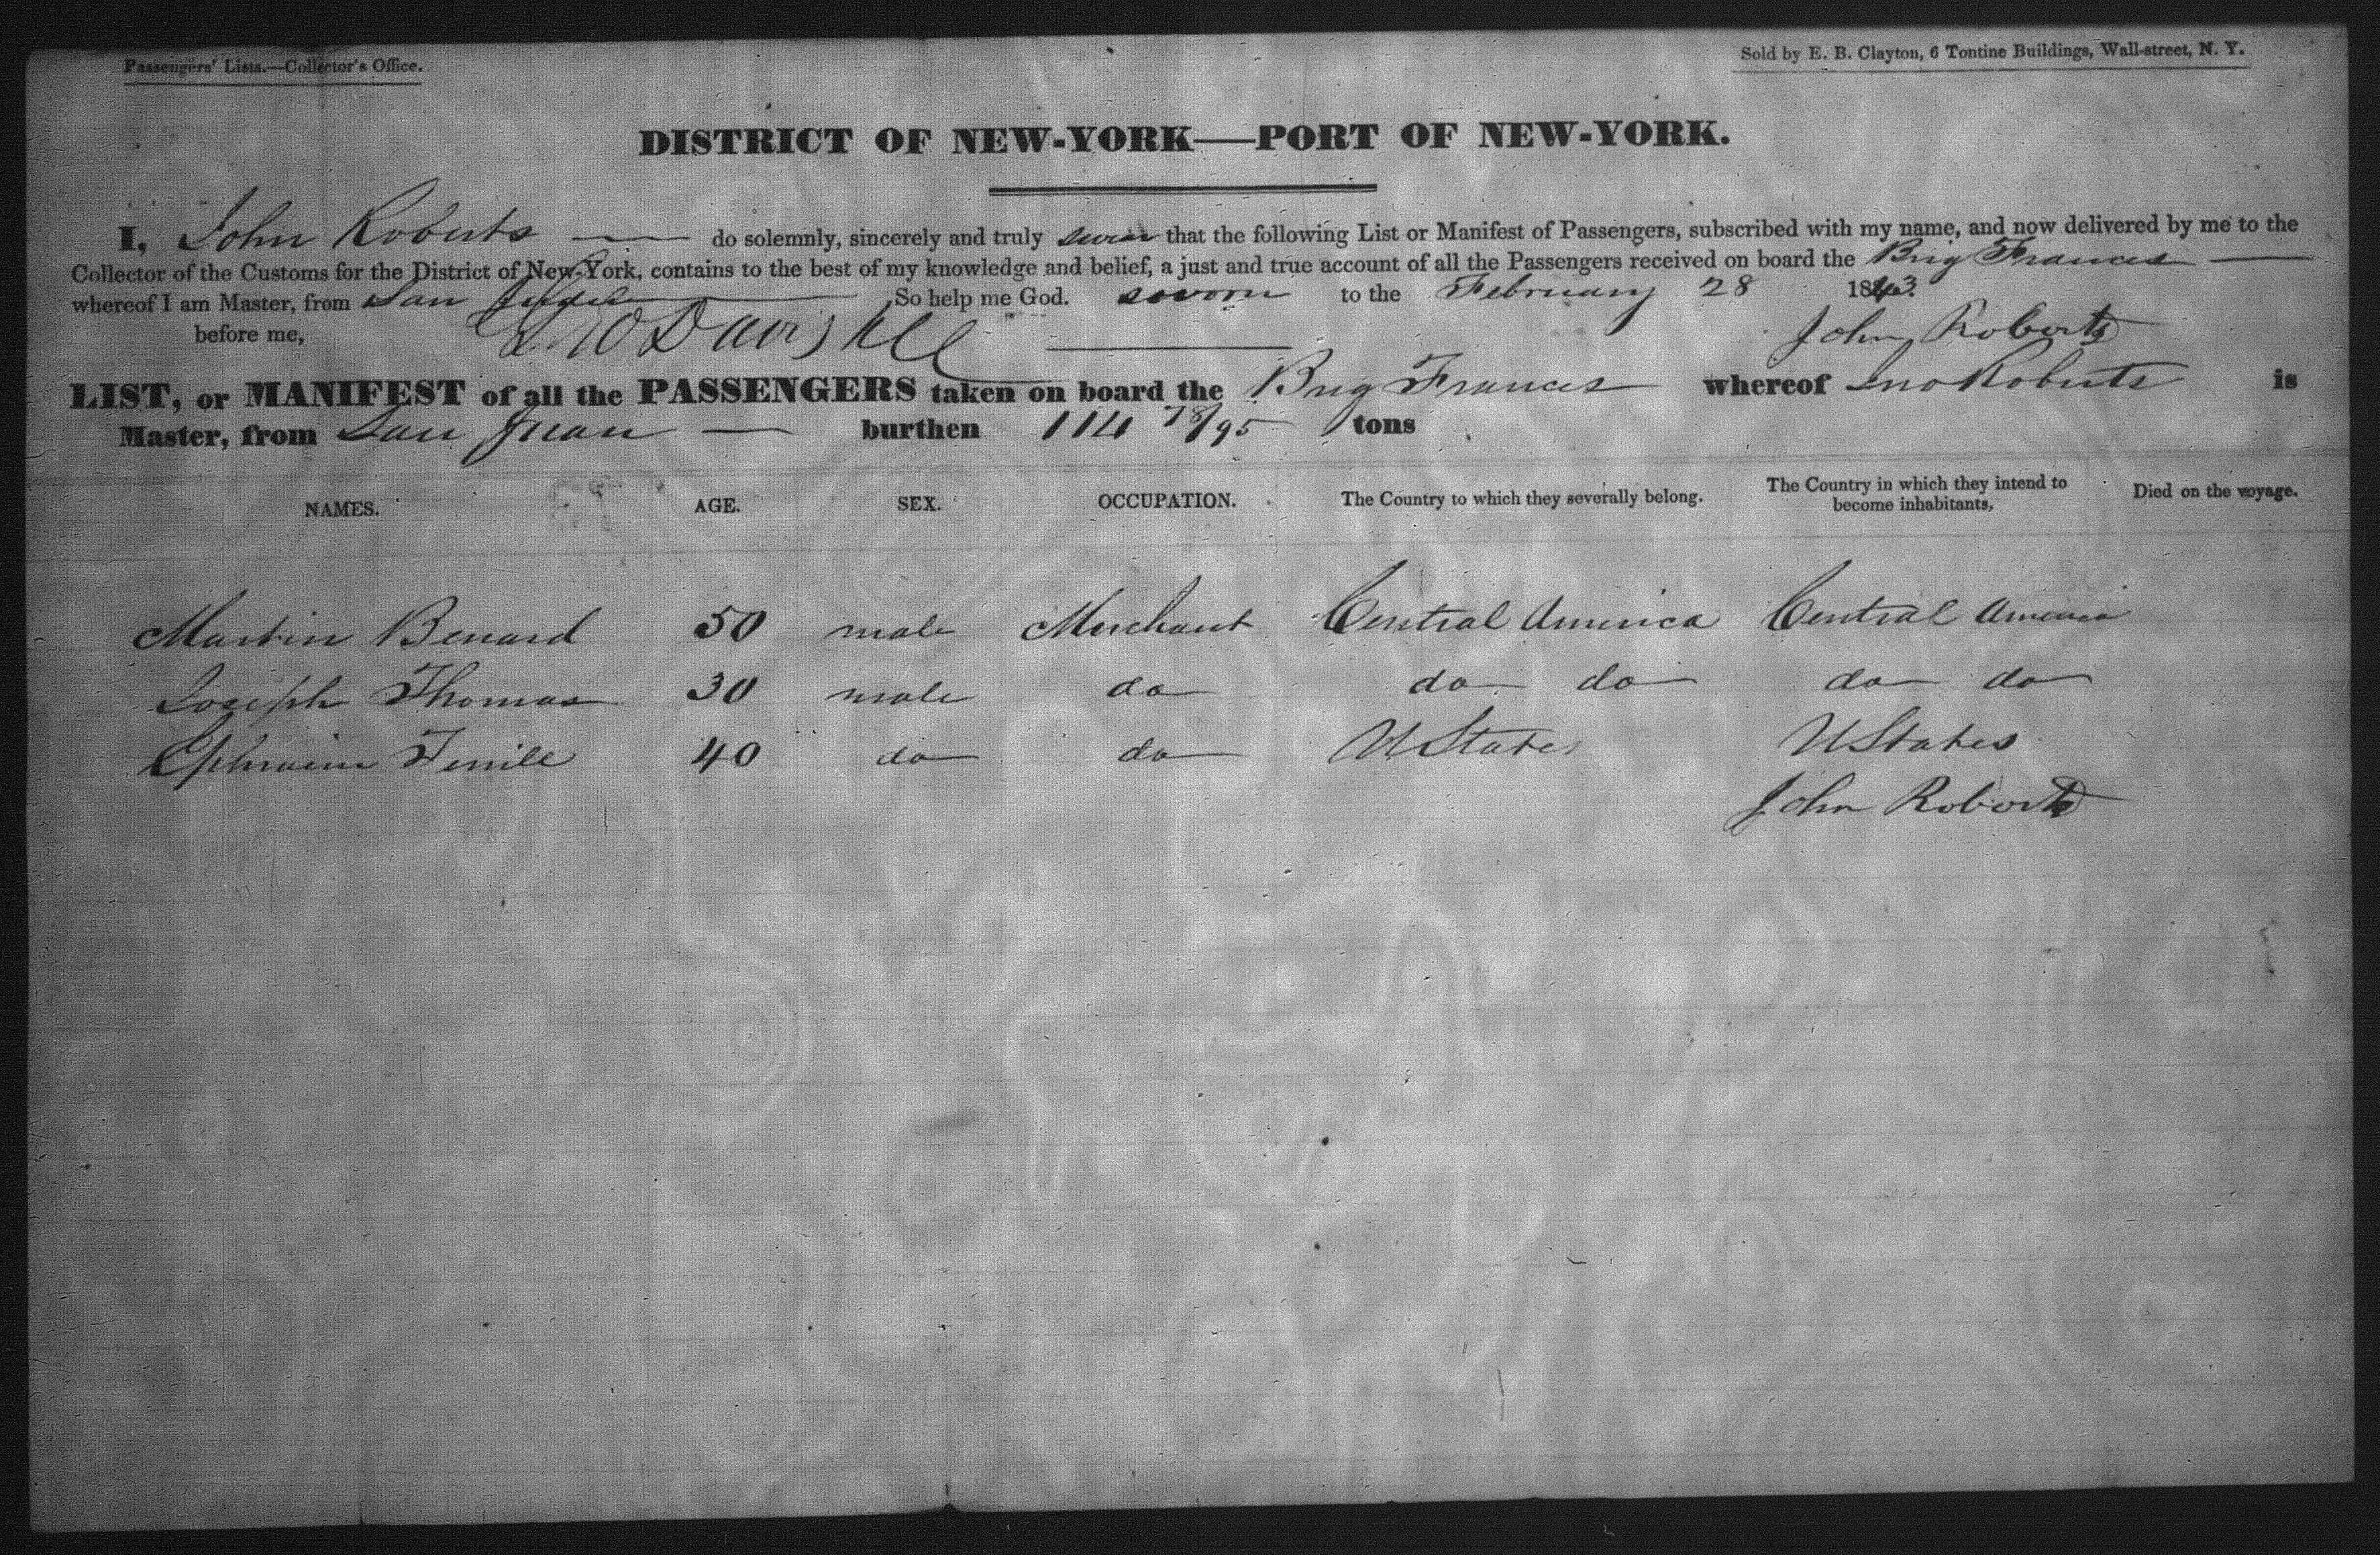 Passengers' Lists.—Collector's Office.
Sold by E. B. Clayton, 6 Tontine Buildings, Wall-street, N. Y.
DISTRICT OF NEW-YORK——PORT OF NEW-YORK.
I, John Roberts — do solemnly, sincerely and truly swear that the following List or Manifest of Passengers, subscribed with my name, and now delivered by me to the
Collector of the Customs for the District of New-York, contains to the best of my knowledge and belief, a just and true account of all the Passengers received on board the Brig Frances —
whereof I am Master, from San So help me God. sworn to the February 28 1843.
before me,
John Roberts
LIST, or MANIFEST of all the PASSENGERS taken on board the Brig Frances whereof Jno Roberts is
Master, from San Juan — burthen 114 78/95 tons
NAMES. AGE. SEX. OCCUPATION. The Country to which they severally belong. The Country in which they intend to become inhabitants, Died on the voyage.
Martin Benard 50 male Merchant Central America Central America
Joseph Thomas 30 male do do do do do
Ephraim 40 do do U States U States
John Roberts